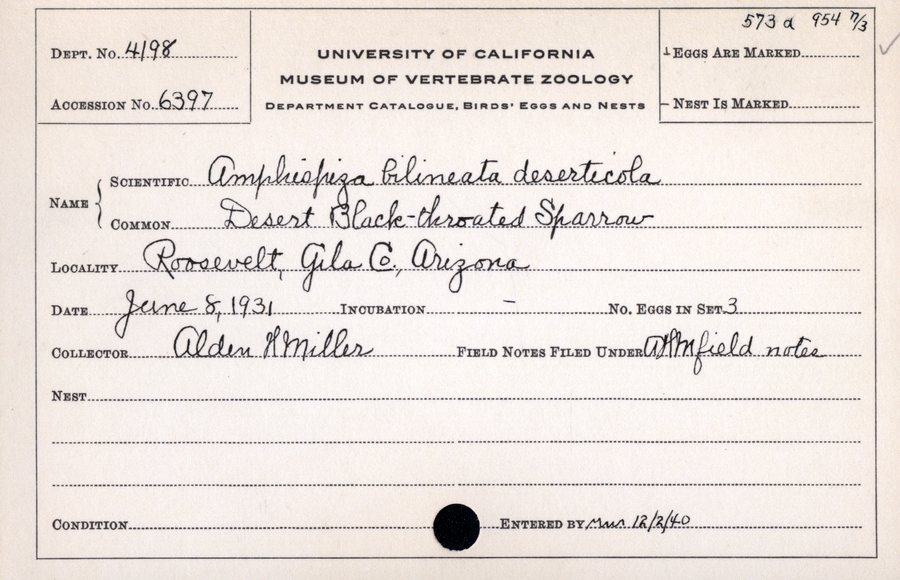 573 a 954 7/3
DEPT. NO. 4198
UNIVERSITY OF CALIFORNIA
1 EGGS ARE MARKED
MUSEUM OF VERTEBRATE ZOOLOGY
ACCESSION NO. 6397
DEPARTMENT CATALOGUE, BIRDS' EGGS AND NESTS
– NEST IS MARKED
NAME { SCIENTIFIC Amphispiza bilineata deserticola
COMMON Desert Black-throated Sparrow
LOCALITY Roosevelt, Gila Co., Arizona
DATE June 8, 1931 INCUBATION – NO. EGGS IN SET 3
COLLECTOR Alden H Miller FIELD NOTES FILED UNDER AHM field notes
NEST
CONDITION ENTERED BY 12/2/40